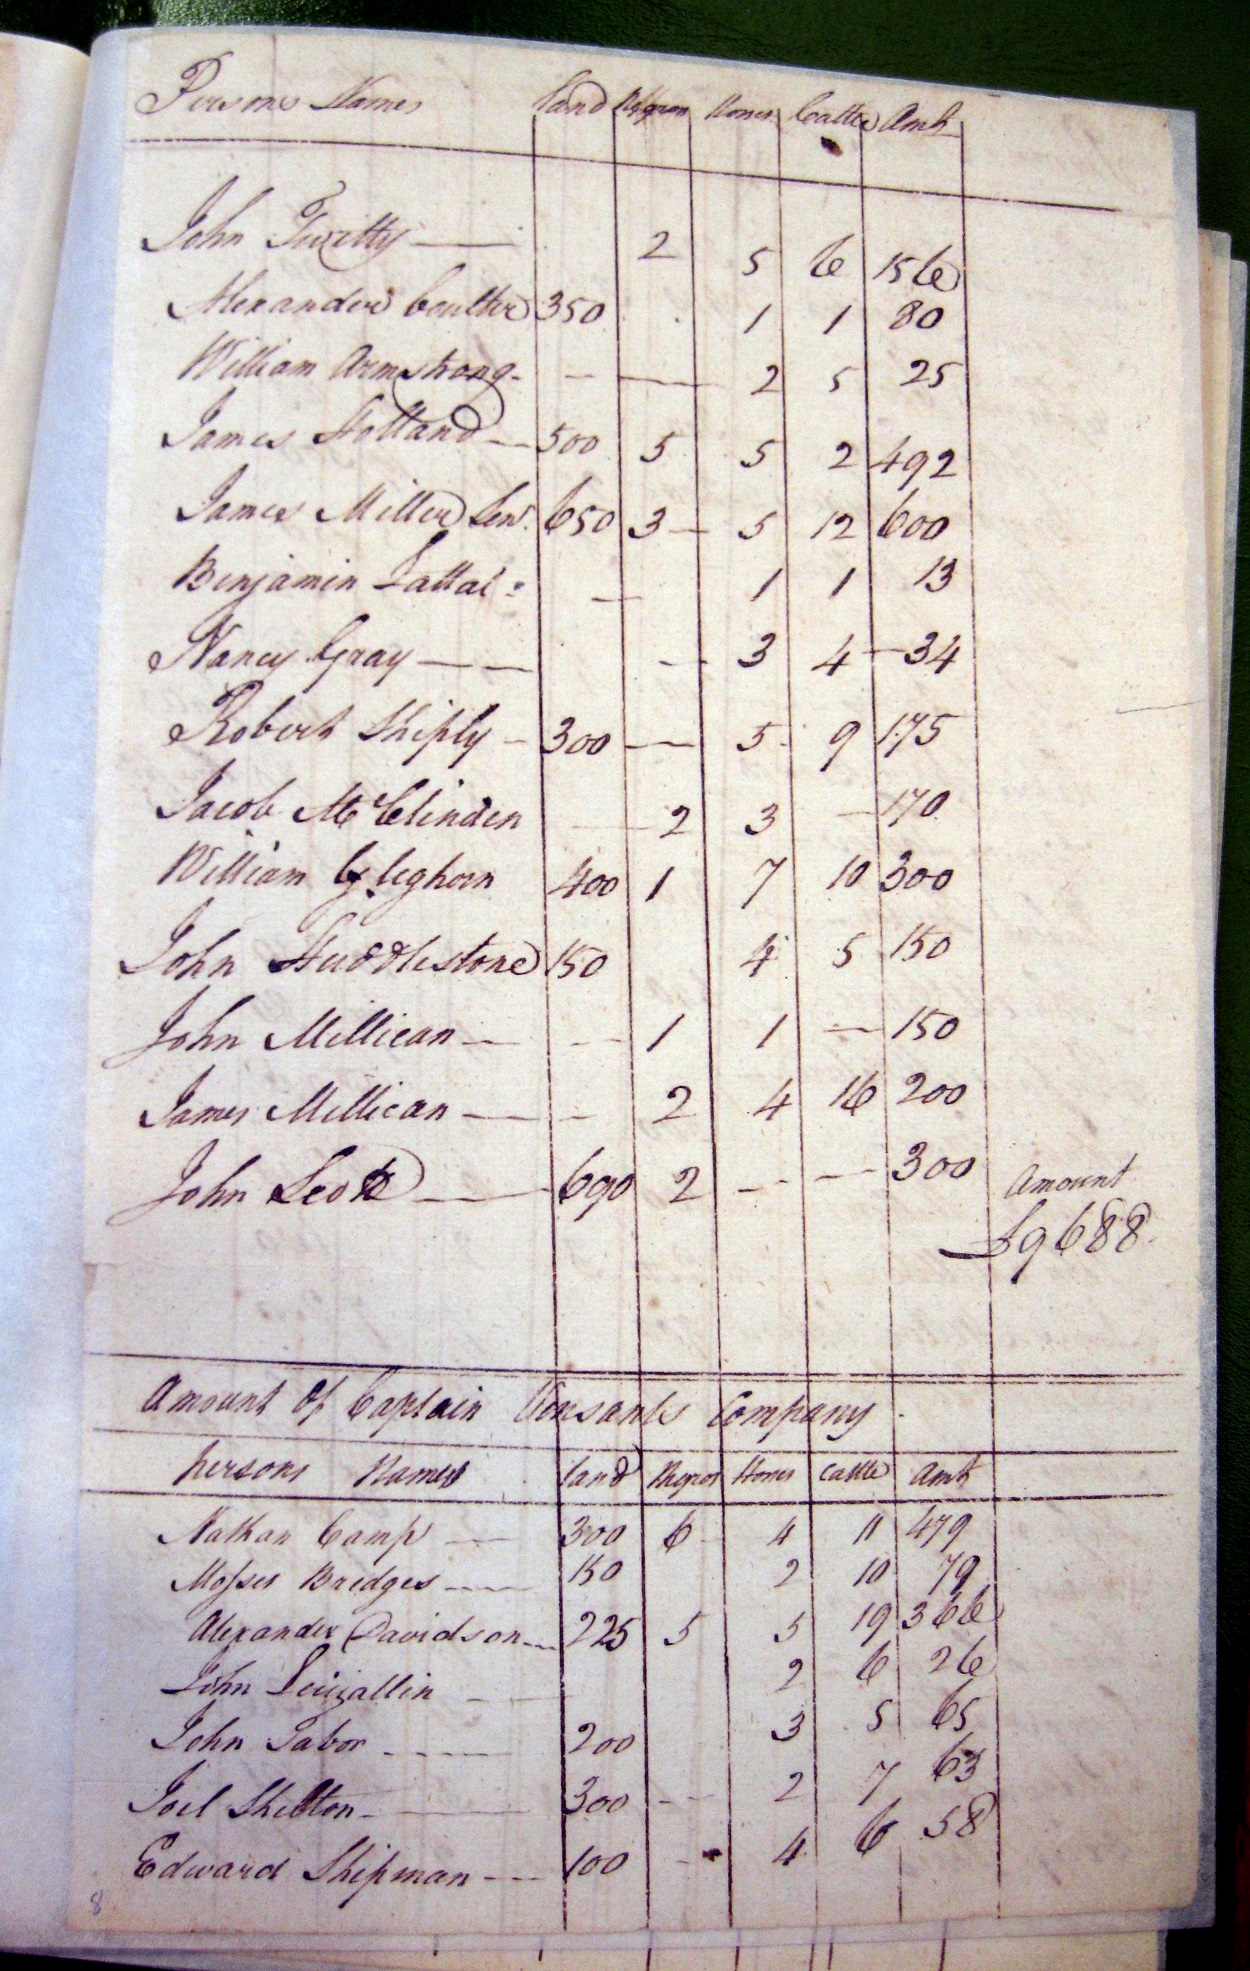 Persons Names Land Negroes Horses Cattle Amt
John Twitty 2 5 6 156
Alexander Coulter 350 1 1 80
William Armstrong - - 2 5 25
James Holland 500 5 5 2 492
James Miller Sen. 650 3 - 5 12 600
Benjamin - 1 1 13
Nancy Gray - - 3 4 - 34
Robert Shiply - 300 - 5 9 175
Jacob McClinden - 2 3 - 170
William Gleghorn 400 1 7 10 300
John Huddlestone 150 4 5 150
John Millican - - 1 1 - 150
James Millican - - 2 4 16 200
John Scott - 690 2 - - 300 Amount
£9688.
Amount Of Captain Company
persons Names land Negros Horses cattle Amt
Nathan Camp - 300 6 4 11 479
Moses Bridges - 150 2 10 79
Alexander Davidson - 225 5 5 19 366
John - 2 6 26
John Tabor - 200 3 5 65
Joel Shelton - 300 - - 2 7 63
Edward Shipman - 100 - 4 6 58
8